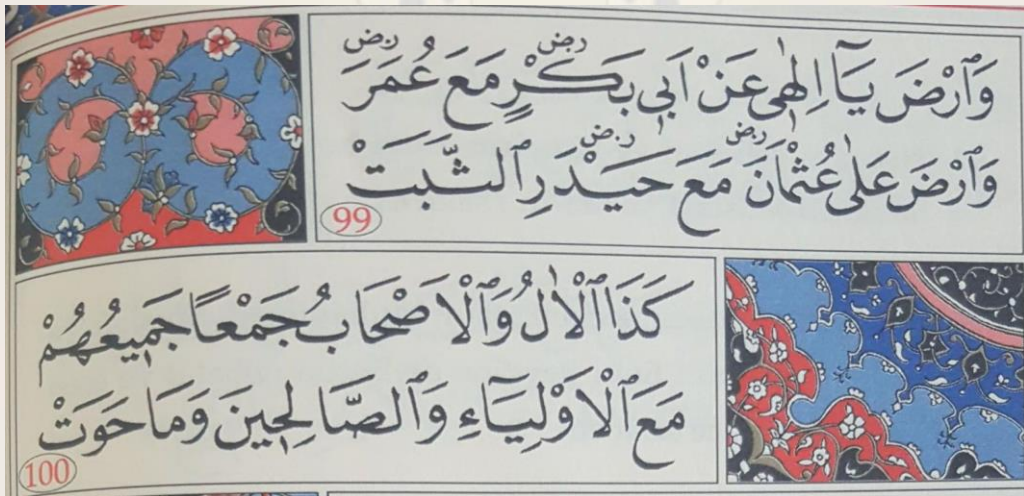 وَٱرْضَ يَآ اِلٰهٖى عَنْ اَبٖى بَكْرٍ رض مَعَ عُمَرَ رض
وَٱرْضَ عَلٰى عُثْمَانَ رض مَعَ حَيْدَرِ رض ٱلثَّبَتْ
99
كَذَا ٱلْاٰلُ وَٱلْاَصْحَابُ جَمْعًا جَمٖيعُهُمْ
مَعَ ٱلْاَوْلِيَآءِ وَٱلصَّالِحٖينَ وَمَا حَوَتْ
100